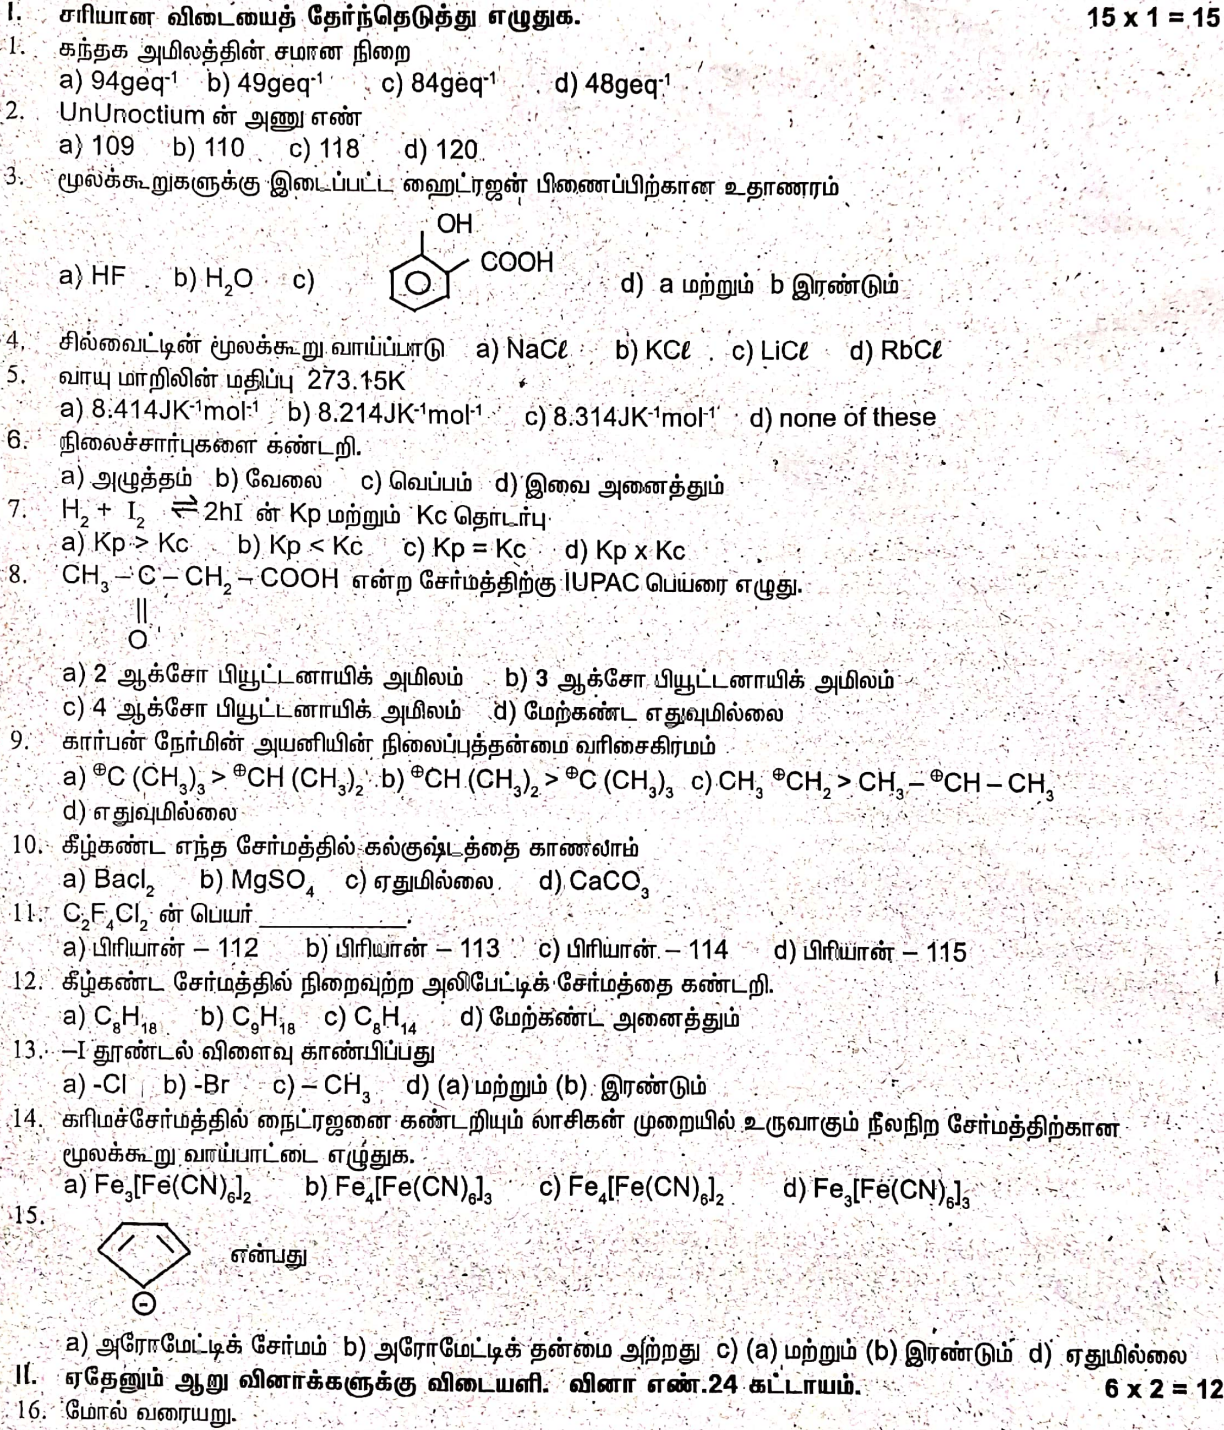 I. சரியான விடையைத் தேர்ந்தெடுத்து எழுதுக. 15 x 1 = 15
1. கந்தக அமிலத்தின் சமான நிறை
a) 94geq⁻¹ b) 49geq⁻¹ c) 84geq⁻¹ d) 48geq⁻¹
2. UnUnoctium ன் அணு எண்
a) 109 b) 110 c) 118 d) 120
3. மூலக்கூறுகளுக்கு இடைப்பட்ட ஹைட்ரஜன் பிணைப்பிற்கான உதாணரம்
OH
COOH
a) HF b) H₂O c) d) a மற்றும் b இரண்டும்
4. சில்வைட்டின் மூலக்கூறு வாய்ப்பாடு a) NaCℓ b) KCℓ c) LiCℓ d) RbCℓ
5. வாயு மாறிலின் மதிப்பு 273.15K
a) 8.414JK⁻¹mol⁻¹ b) 8.214JK⁻¹mol⁻¹ c) 8.314JK⁻¹mol⁻¹ d) none of these
6. நிலைச்சார்புகளை கண்டறி.
a) அழுத்தம் b) வேலை c) வெப்பம் d) இவை அனைத்தும்
7. H₂ + I₂ ⇌ 2hI ன் Kp மற்றும் Kc தொடர்பு
a) Kp > Kc b) Kp < Kc c) Kp = Kc d) Kp x Kc
8. CH₃ – C – CH₂ – COOH என்ற சேர்மத்திற்கு IUPAC பெயரை எழுது.
||
O
a) 2 ஆக்சோ பியூட்டனாயிக் அமிலம் b) 3 ஆக்சோ பியூட்டனாயிக் அமிலம்
c) 4 ஆக்சோ பியூட்டனாயிக் அமிலம் d) மேற்கண்ட எதுவுமில்லை
9. கார்பன் நேர்மின் அயனியின் நிலைப்புத்தன்மை வரிசைகிரமம்
a) ⊕C (CH₃)₃ > ⊕CH (CH₃)₂ b) ⊕CH (CH₃)₂ > ⊕C (CH₃)₃ c) CH₃ ⊕CH₂ > CH₃ – ⊕CH – CH₃
d) எதுவுமில்லை
10. கீழ்கண்ட எந்த சேர்மத்தில் கல்குஷ்டத்தை காணலாம்
a) Bacl₂ b) MgSO₄ c) ஏதுமில்லை. d) CaCO₃
11. C₂F₄Cl₂ ன் பெயர் ____________.
a) பிரியான் – 112 b) பிரியான் – 113 c) பிரியான் – 114 d) பிரியான் – 115
12. கீழ்கண்ட சேர்மத்தில் நிறைவுற்ற அலிபேட்டிக் சேர்மத்தை கண்டறி.
a) C₈H₁₈ b) C₉H₁₈ c) C₈H₁₄ d) மேற்கண்ட அனைத்தும்
13. –I தூண்டல் விளைவு காண்பிப்பது
a) -Cl b) -Br c) – CH₃ d) (a) மற்றும் (b) இரண்டும்
14. கரிமச்சேர்மத்தில் நைட்ரஜனை கண்டறியும் லாசிகன் முறையில் உருவாகும் நீலநிற சேர்மத்திற்கான
மூலக்கூறு வாய்பாட்டை எழுதுக.
a) Fe₃[Fe(CN)₆]₂ b) Fe₄[Fe(CN)₆]₃ c) Fe₄[Fe(CN)₆]₂ d) Fe₃[Fe(CN)₆]₃
15. என்பது
a) அரோமேட்டிக் சேர்மம் b) அரோமேட்டிக் தன்மை அற்றது c) (a) மற்றும் (b) இரண்டும் d) ஏதுமில்லை
II. ஏதேனும் ஆறு வினாக்களுக்கு விடையளி. வினா எண்.24 கட்டாயம். 6 x 2 = 12
16. மோல் வரையறு.